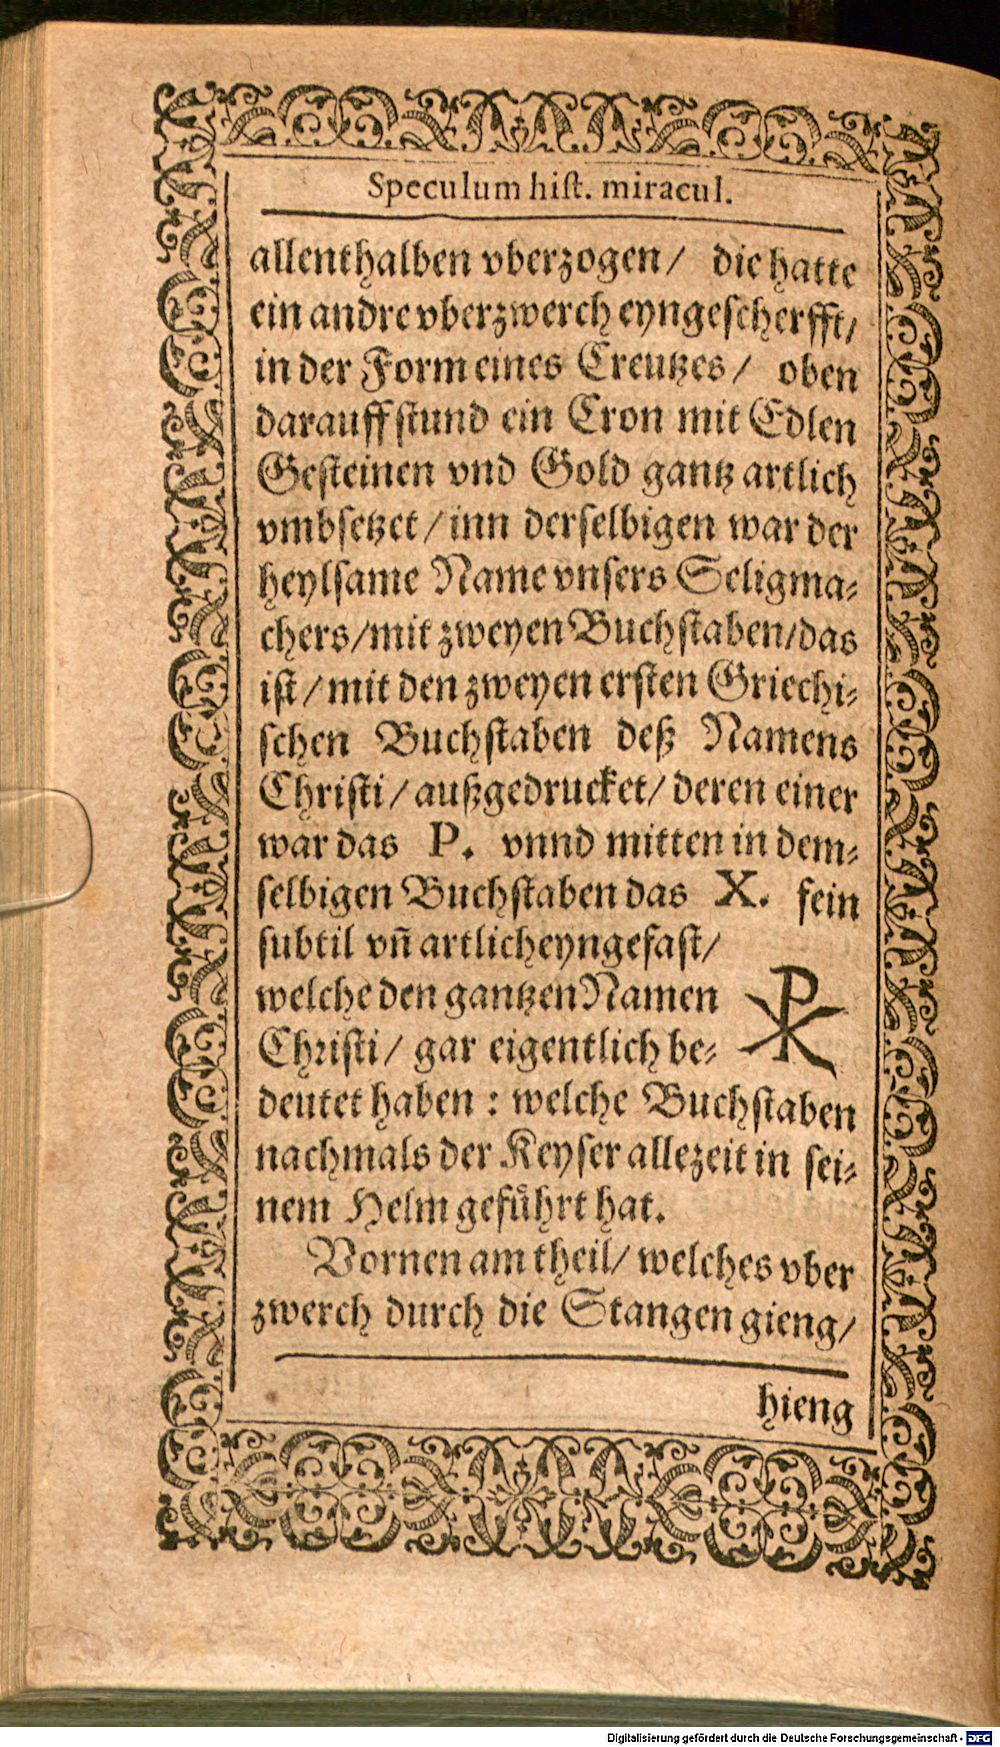 Speculum hist. miracul.
allenthalben vberzogen/ die hatte
ein andre vberzwerch eyngescherfft/
in der Form eines Creutzes/ oben
darauff stund ein Cron mit Edlen
Gesteinen vnd Gold gantz artlich
vmbsetzet/inn derselbigen war der
heylsame Name vnsers Seligma-
chers/mit zweyen Buchstaben/das
ist/mit den zweyen ersten Griechi-
schen Buchstaben deß Namens
Christi/außgedrucket/deren einer
war das P. vnnd mitten in dem-
selbigen Buchstaben das X. fein
subtil vñ artlich eyngefast/
welche den gantzen Namen
Christi/ gar eigentlich be-
☧
deutet haben: welche Buchstaben
nachmals der Keyser allezeit in sei-
nem Helm gefuͤhrt hat.
Vornen am theil/ welches vber
zwerch durch die Stangen gieng/
hieng
Digitalisierung gefördert durch die Deutsche Forschungsgemeinschaft - DFG